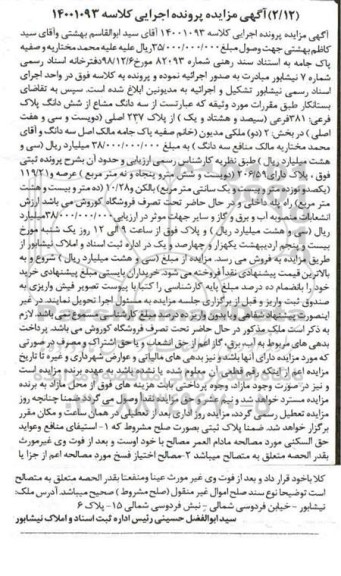 (۲/۱۲) آگهی مزایده پرونده اجرایی کلاسه ۱۴۰۰۱۰۹۳
آگهی مزایده پرونده اجرایی کلاسه ۱۴۰۰۱۰۹۳ آقای سید ابوالقاسم بهشتی وآقای سید
کاظم بهشتی جهت وصول مبلغ ۳۵/۰۰۰/۰۰۰/۰۰۰ریال علیه علیه محمد مختاریه و صفیه
پاک جامه به استناد سند رهنی شماره ۸۲۰۹۳ مورخ ۹۸/۱۲/۶دفترخانه اسناد رسمی
شماره ۷ نیشابور مبادرت به صدور اجرائیه نموده و پرونده به کلاسه فوق در واحد اجرای
اسناد رسمی نیشابور تشکیل و اجرائیه به مدیونین ابلاغ شده است. سپس به تقاضای
بستانکار طبق مقررات مورد وثیقه که عبارتست از سه دانگ مشاع از شش دانگ پلاک
فرعی: ۳۸۱فرعی (سیصد و هشتاد و یک) از پلاک ۲۳۷ اصلی (دویست و سی و هفت
اصلی) در بخش: ۲ (دو) ملکی مدیون (خانم صفیه پاک جامه مالک اصل سه دانگ و آقای
محمد مختاریه مالک منافع سه دانگ) به مبلغ ۳۸/۰۰۰/۰۰۰/۰۰۰ میلیارد ریال (سی و
هشت میلیارد ریال) طبق نظریه کارشناس رسمی ارزیابی و حدود آن بشرح پرونده ثبتی
فوق، پلاک دارای ۲۰۶/۵۹ (دویست و شش مترو پنجاه و نه متر مربع) عرصه و ۱۱۹/۲۱
(یکصدو نوزده متر و بیست و یک سانتی متر مربع) بالکن و۱۰/۲۸ (ده متر و بیست و هشت
متر مربع) راه پله داخلی و در حال حاضر تحت تصرف فروشگاه کوروش می باشد ارزش
انشعابات منصوبه آب و برق و گاز و سایر جهات موثر در ارزیابی۳۸/۰۰۰/۰۰۰/۰۰۰میلیارد
ریال (سی و هشت میلیارد ریال) و پلاک فوق از ساعت ۹ الی ۱۲ روز یک شنبه مورخ
بیست و پنجم اردیبهشت یکهزار و چهارصد و یک در اداره ثبت اسناد و املاک نیشابور از
طریق مزایده به فروش می رسد. مزایده از مبلغ (سی و هشت میلیارد ریال) شروع و به
بالاترین قیمت پیشنهادی نقداً فروخته می شود. خریداران بایستی مبلغ پیشنهادی خرید
خود را بانضمام ده درصد مبلغ پایه کارشناسی را کتباً با پیوست تصویر فیش واریزی به
صندوق ثبت واریز و قبل از برگزاری جلسه مزایده به مسئول اجرا تحویل نمایند. در غیر
اینصورت پیشنهاد شفاهی و یا بدون واریز ده درصد مبلغ کارشناسی مسموع نمی باشد. لازم
به ذکر است ملک مذکور در حال حاضر تحت تصرف فروشگاه کوروش می باشد. پرداخت
بدهی های مربوط به آب، برق، گاز اعم از حق انشعاب و یا حق اشتراک و مصرف در صورتی
که مورد مزایده دارای آنها باشد و نیز بدهی های مالیاتی و عوارض شهرداری و غیره تا تاریخ
مزایده اعم از اینکه رقم قطعی آن معلوم شده یا نشده باشد به عهده برنده مزایده است
و نیز در صورت وجود مازاد، وجوه پرداختی بابت هزینه های فوق از محل مازاد به برنده
مزایده مسترد خواهد شد و نیم عشر و حق مزایده نقداً وصول می گردد. ضمنا چنانچه روز
مزایده تعطیل رسمی گردد، مزایده روز اداری بعد از تعطیلی در همان ساعت و مکان مقرر
برگزار خواهد شد. ضمنا پلاک ثبتی بصورت صلح مشروط که ۱- استیفای منافع وعواید
حق السکنی مورد مصالحه مادام العمر مصالح با خود اوست و بعد از فوت وی غیرمورث
بقدر الحصه متعلق به متصالح میباشد ۲-مصالح اختیار فسخ مورد مصالحه اعم از جزا یا
کلا باخود قرار داد و بعد از فوت وی غیر مورث عینا ومنفعتا بقدر الحصه متعلق به متصالح
است توضیحا نوع سند صلح اموال غیر منقول (صلح مشروط) صحیح میباشد. آدرس ملک:
نیشابور - خیابن فردوسی شمالی - نبش فردوسی شمالی ۱۵- پلاک ۶
سید ابوالفضل حسینی رئیس اداره ثبت اسناد و املاک نیشابور